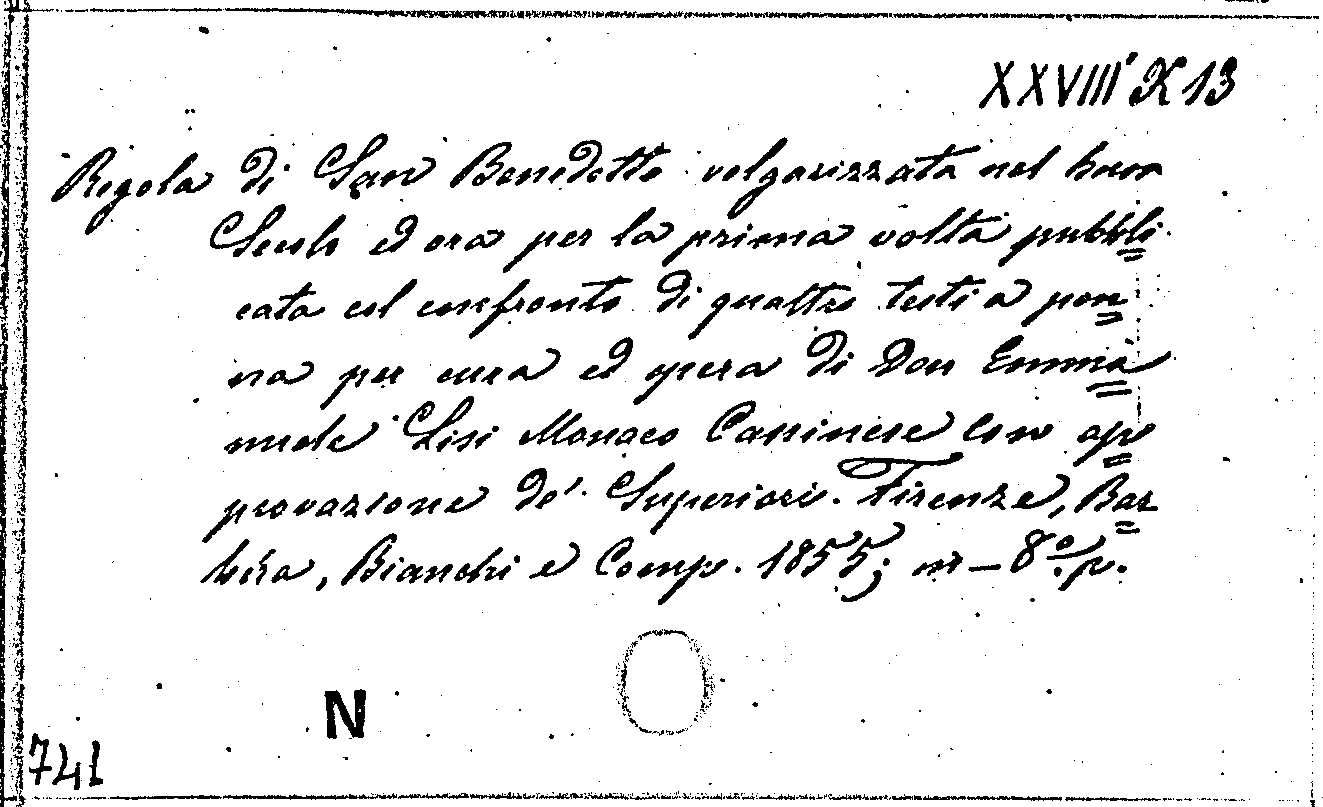 XXVIII K 13
Regola di San Benedetto volgarizzata nel buon
Secolo ed ora per la prima volta pubbli=
cata col confronto di quattro testi a pen=
na per cura ed opera di Don Emma=
nuele Lisi Monaco Cassinese con ap=
provazione de' Superiori. Firenze, Bar=
bèra, Bianchi e Comp. 1855; in-8.° p.
N
741